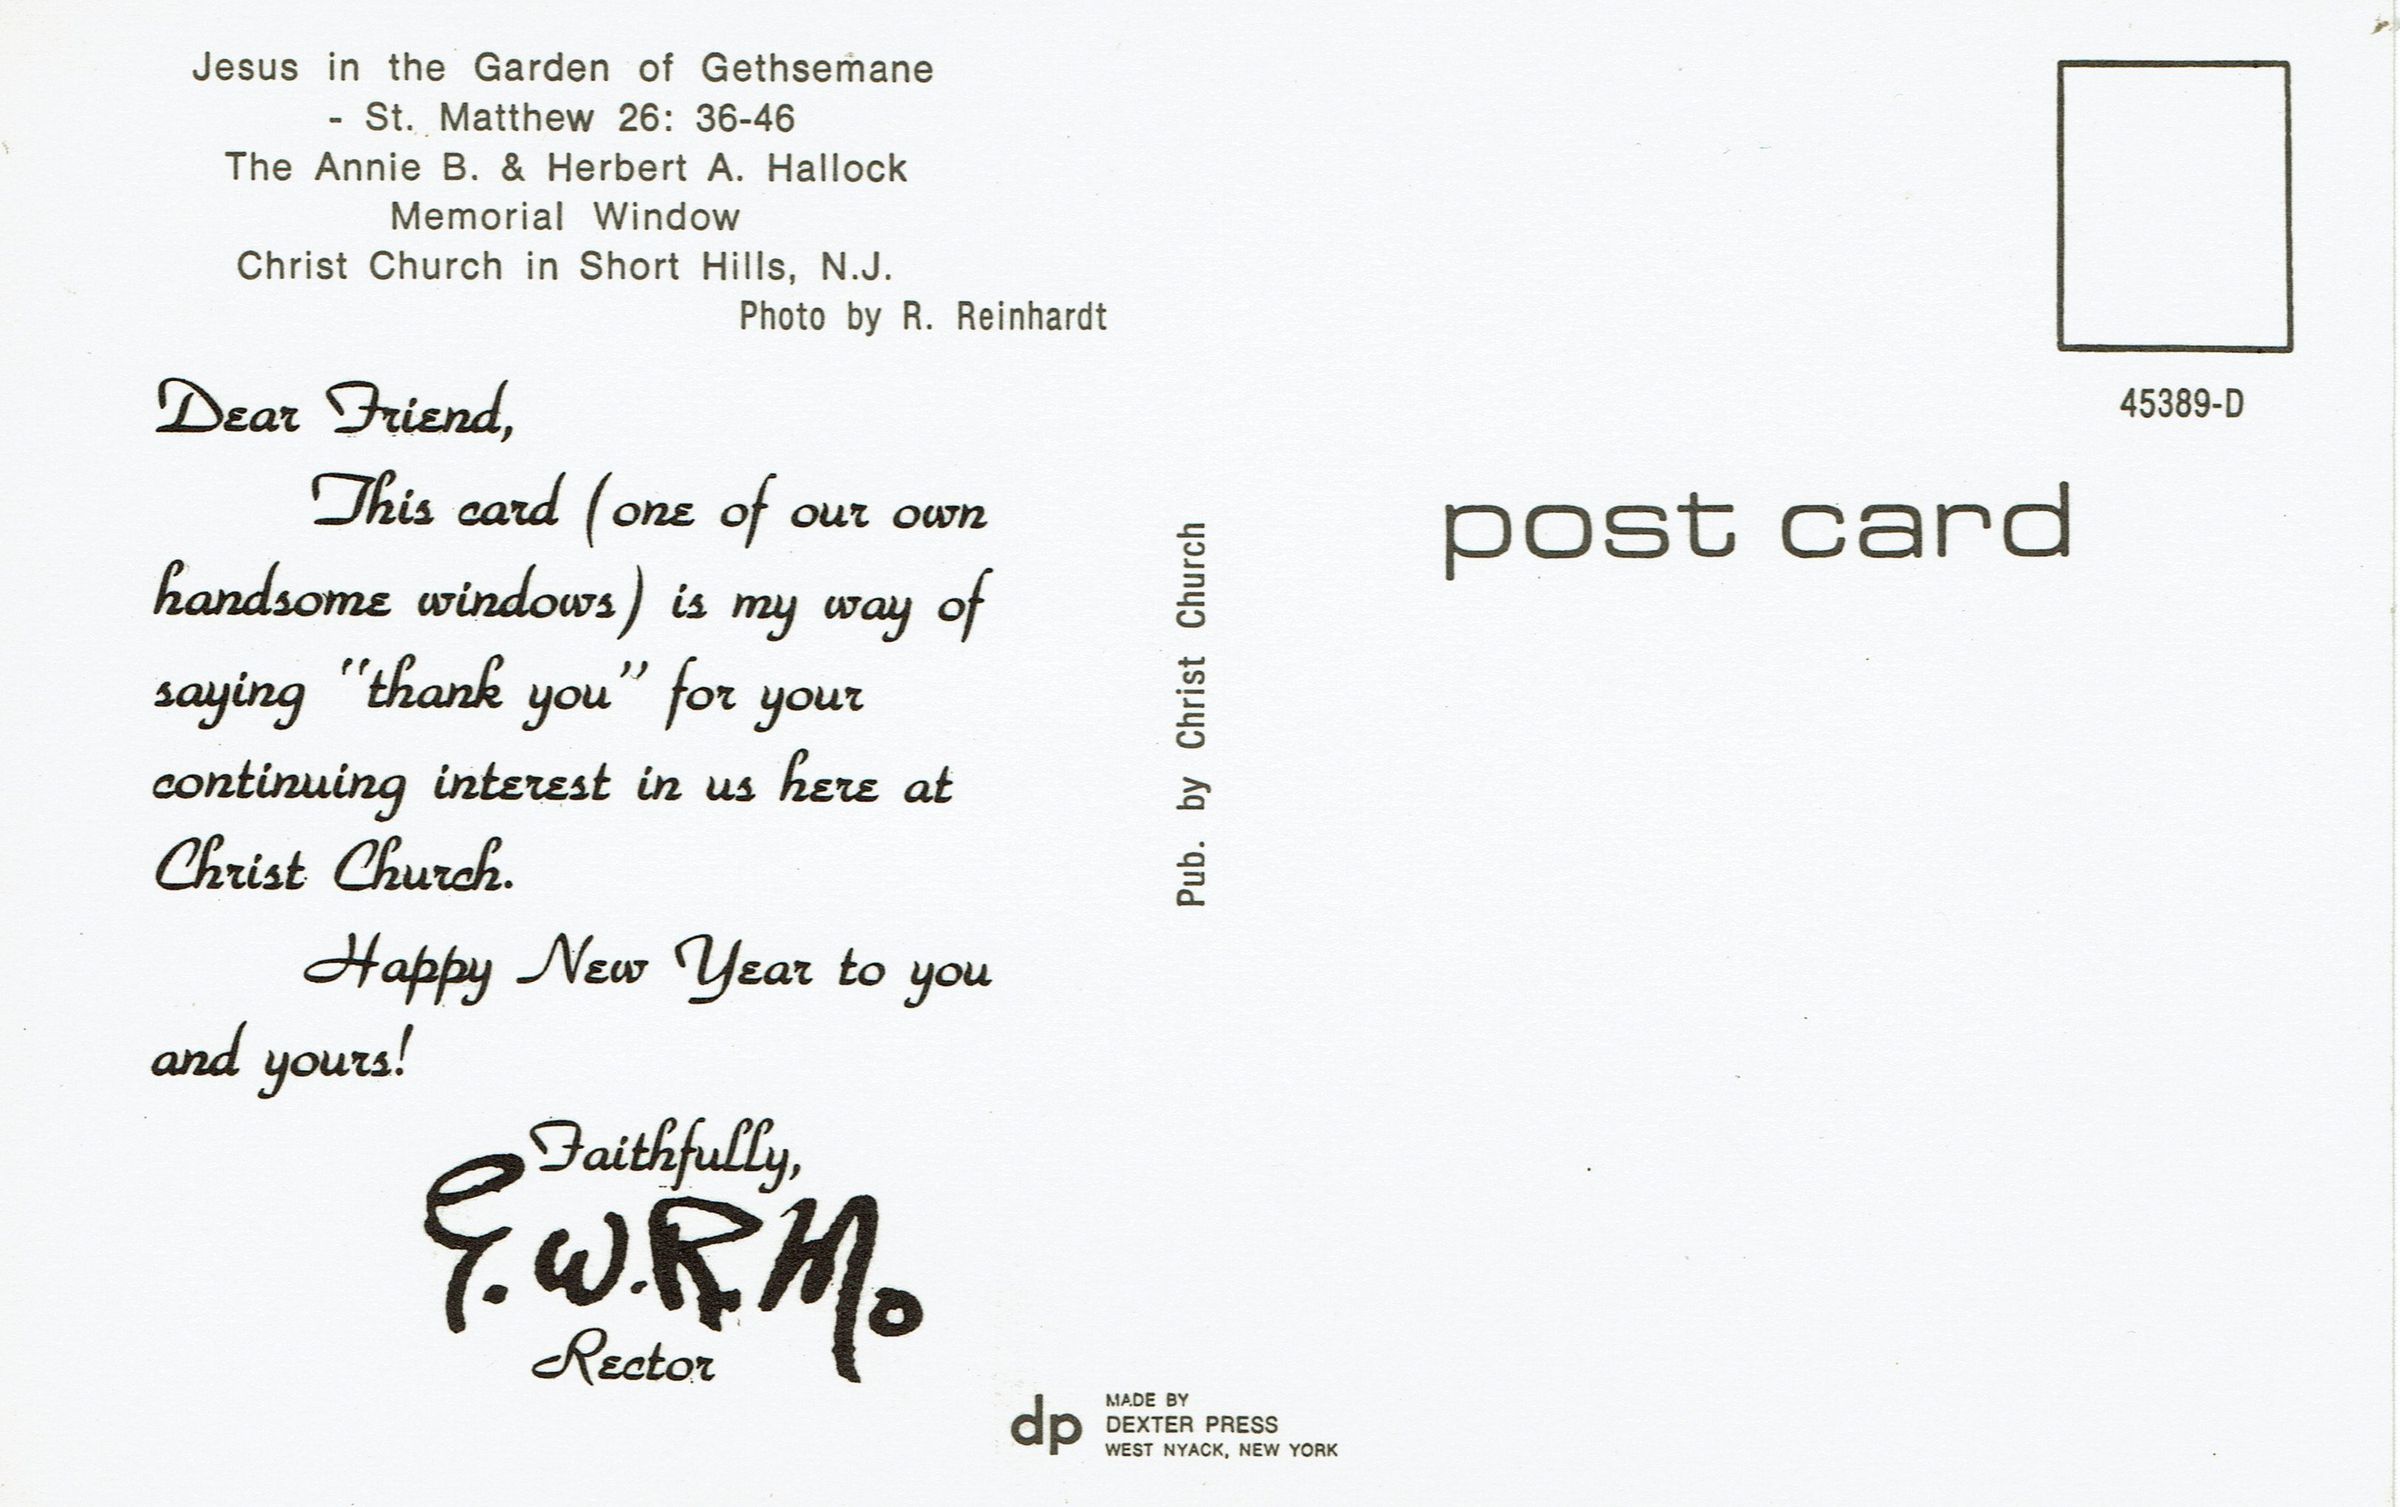 Jesus in the Garden of Gethsemane
- St. Matthew 26: 36-46
The Annie B. & Herbert A. Hallock
Memorial Window
Christ Church in Short Hills, N.J.
Photo by R. Reinhardt
Dear Friend,
This card (one of our own
handsome windows) is my way of
saying "thank you" for your
continuing interest in us here at
Christ Church.
Happy New Year to you
and yours!
Faithfully,
Rector
Pub. by Christ Church
dp
MADE BY
DEXTER PRESS
WEST NYACK, NEW YORK
45389-D
post card